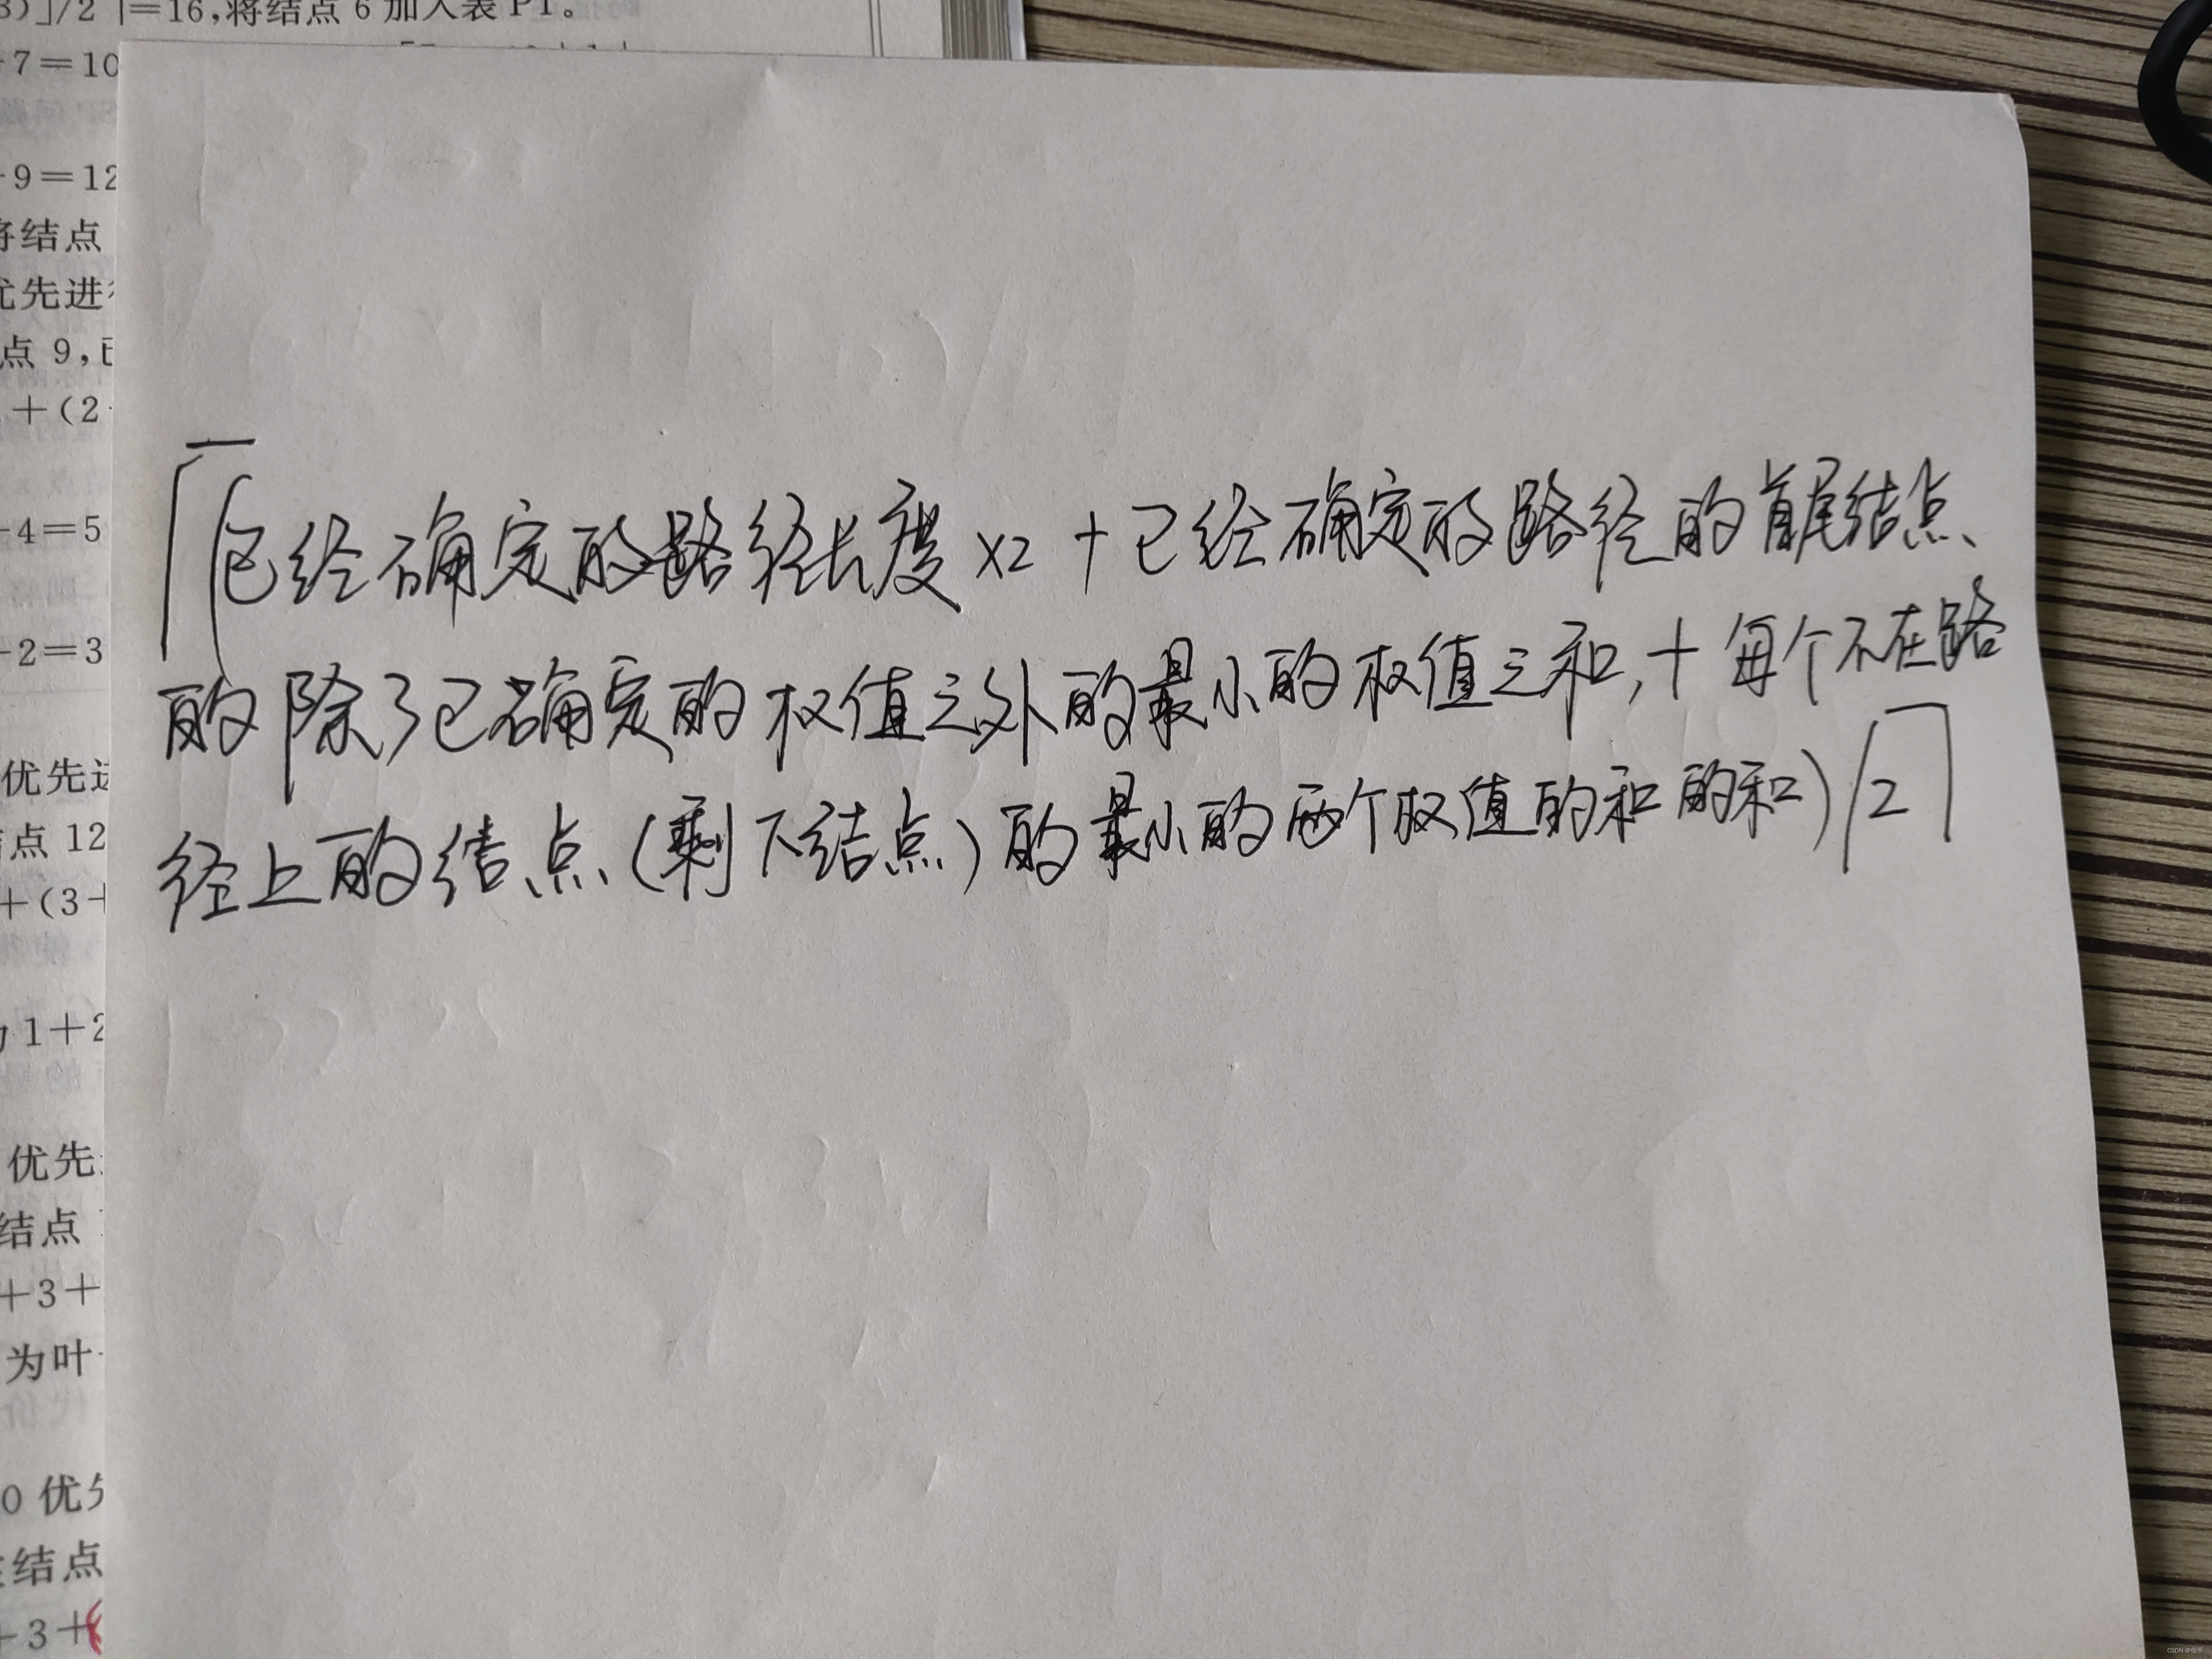 3)]/2⌉=16,将结点 6 加入表 PT。
+7=10
+9=12
将结点
优先进行
点 9,已
+(2
+4=5
+2=3
优先进
结点 12
+(3+
为 1+2
优先
结点
+3+
为叶
0 优先
结点
+3+
⌈(已经确定的路径长度×2+已经确定的路径的首尾结点
的除了已确定的权值之外的最小的权值之和,+每个不在路
径上的结点(剩下结点)的最小的两个权值的和的和)/2⌉